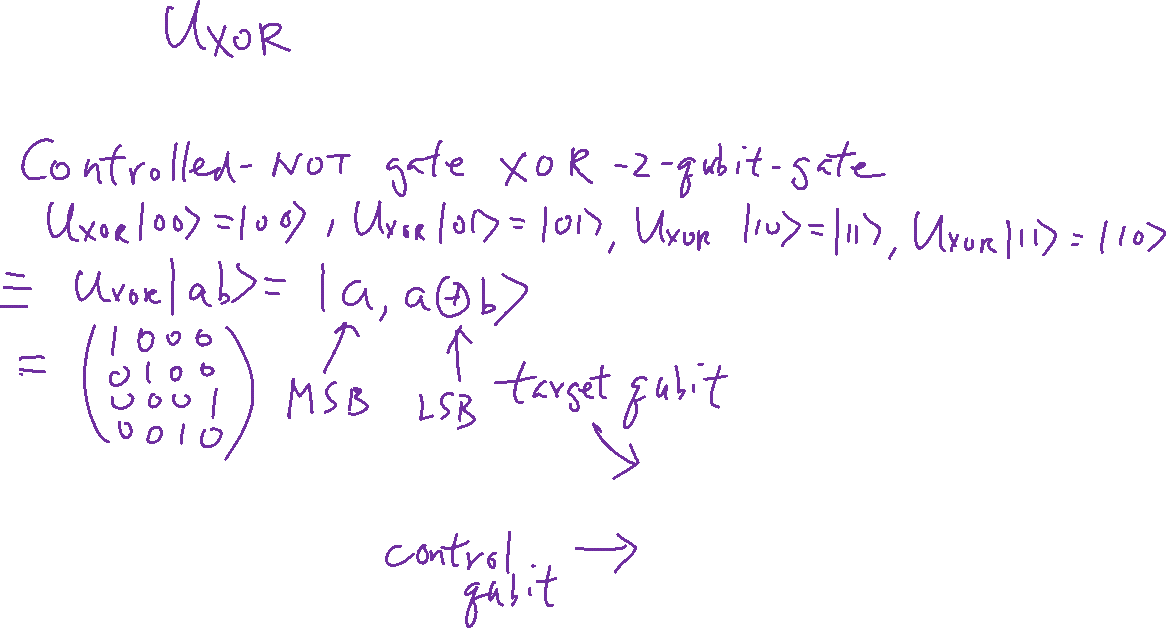 UXOR
Controlled-NOT gate XOR -2-qubit-gate
UXOR|00> = |00>, UXOR|01> = |01>, UXOR |10> = |11>, UXOR|11> = |10>
≡ UXOR|ab> = |a, a⊕b>
= (1 0 0 0
0 1 0 0
0 0 0 1
0 0 1 0)
MSB LSB target qubit
control
qubit